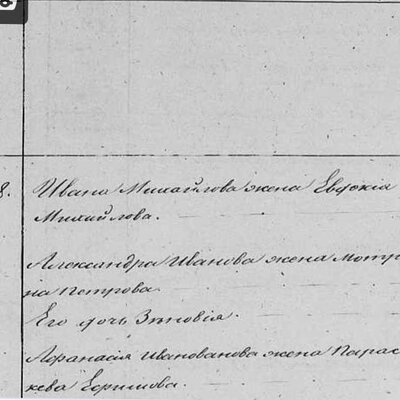 8.
Ивана Михайлова жена Евдокiя
Михайлова.
Александра Иванова жена Мотр
на Петрова.
Его дочь Зиновiя.
Афанасiя Ивановнова жена Парас
кева Ефимова.